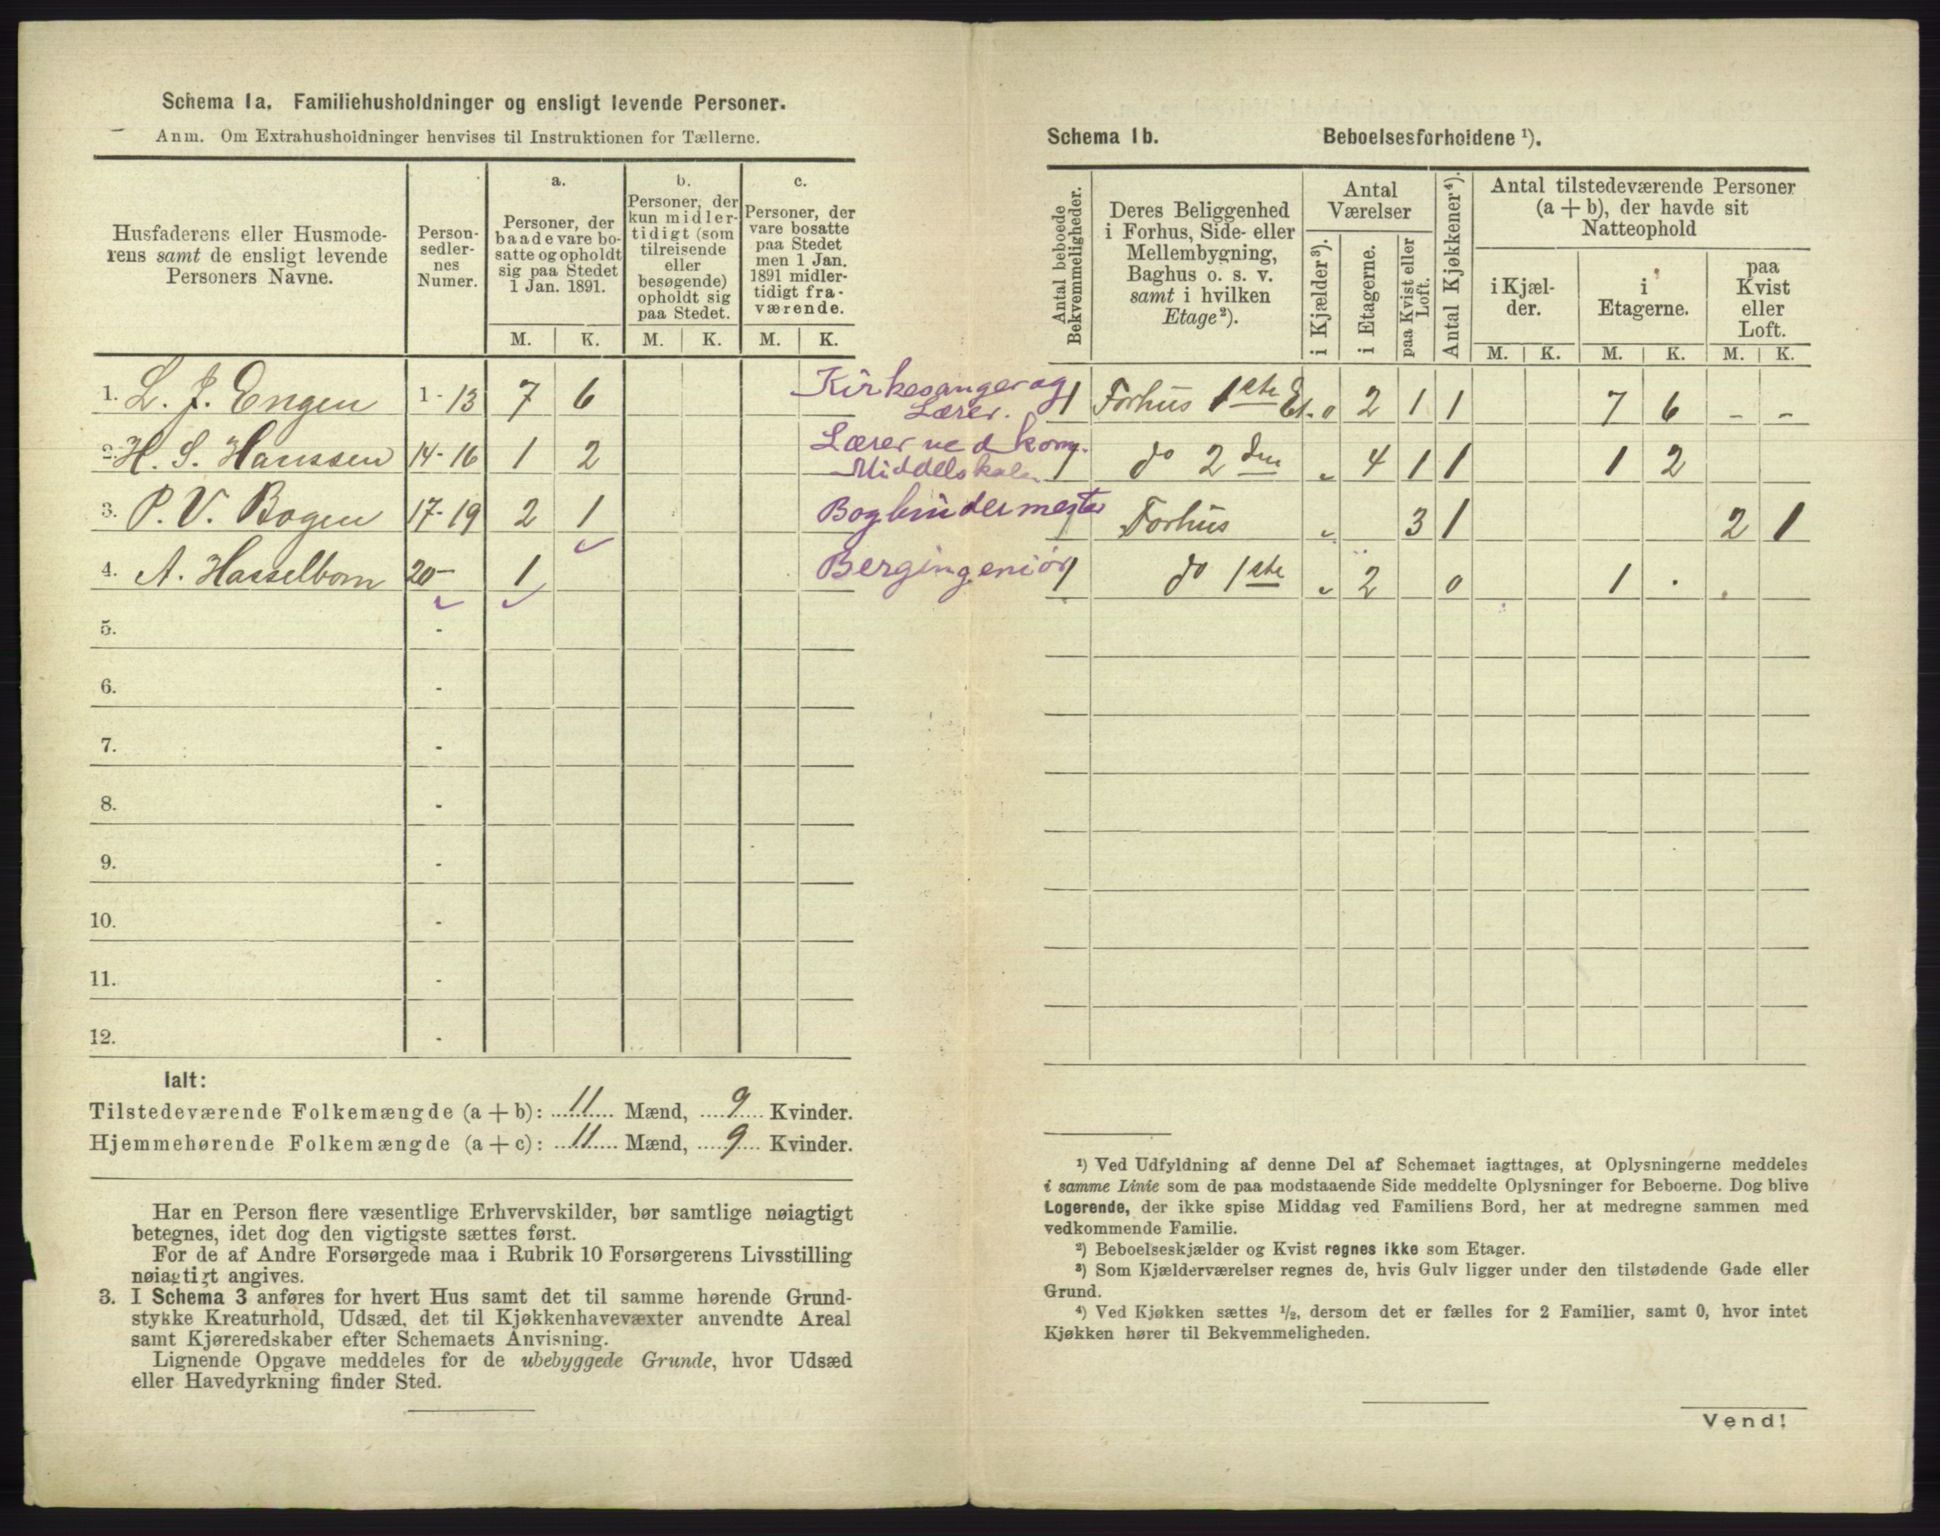 Schema 1a. Familiehusholdninger og ensligt levende Personer.
Anm. Om Extrahusholdninger henvises til Instruktionen for Tællerne.
Husfaderens eller Husmode-
rens samt de ensligt levende
Personers Navne.
Person-
sedler-
nes
Numer.
a.
Personer, der
baade vare bo-
satte og opholdt
sig paa Stedet
1 Jan. 1891.
b.
Personer, der
kun midler-
tidigt (som
tilreisende
eller
besøgende)
opholdt sig
paa Stedet.
c.
Personer, der
vare bosatte
paa Stedet
men 1 Jan.
1891 midler-
tidigt fra-
værende.
M. K. M. K. M. K.
1. L. J. Engen 1 - 13 7 6 Kirkesanger og
Lærer.
2. H. S. Hanssen 14 - 16 1 2 Lærer ved kom.
Middelskolen
3. P. V. Bogen 17 - 19 2 1 Bogbindermester
4. A. Hasselbom 20 - 1 Bergingeniør
5. -
6. -
7. -
8. -
9. -
10. -
11. -
12. -
Ialt:
Tilstedeværende Folkemængde (a + b): 11 Mænd, 9 Kvinder.
Hjemmehørende Folkemængde (a + c): 11 Mænd, 9 Kvinder.
Har en Person flere væsentlige Erhvervskilder, bør samtlige nøiagtigt
betegnes, idet dog den vigtigste sættes først.
For de af Andre Forsørgede maa i Rubrik 10 Forsørgerens Livsstilling
nøiagtigt angives.
3. I Schema 3 anføres for hvert Hus samt det til samme hørende Grund-
stykke Kreaturhold, Udsæd, det til Kjøkkenhavevæxter anvendte Areal
samt Kjøreredskaber efter Schemaets Anvisning.
Lignende Opgave meddeles for de ubebyggede Grunde, hvor Udsæd
eller Havedyrkning finder Sted.
Schema 1b. Beboelsesforholdene ¹).
Antal beboede
Bekvemmeligheder.
Deres Beliggenhed
i Forhus, Side- eller
Mellembygning,
Baghus o. s. v.
samt i hvilken
Etage²).
Antal
Værelser
i Kjælder³).
i Etagerne.
paa Kvist eller
Loft.
Antal Kjøkkener⁴).
Antal tilstedeværende Personer
(a + b), der havde sit
Natteophold
i Kjæl-
der.
i
Etagerne.
paa
Kvist
eller
Loft.
M. K. M. K. M. K.
1 Forhus 1ste Et. 0 2 1 1 7 6 - -
1 do 2den " 4 1 1 1 2
1 Forhus " 3 1 2 1
1 do 1ste " 2 0 1 .
¹) Ved Udfyldning af denne Del af Schemaet iagttages, at Oplysningerne meddeles
i samme Linie som de paa modstaaende Side meddelte Oplysninger for Beboerne. Dog blive
Logerende, der ikke spise Middag ved Familiens Bord, her at medregne sammen med
vedkommende Familie.
²) Beboelseskjælder og Kvist regnes ikke som Etager.
³) Som Kjælderværelser regnes de, hvis Gulv ligger under den tilstødende Gade eller
Grund.
⁴) Ved Kjøkken sættes ½, dersom det er fælles for 2 Familier, samt 0, hvor intet
Kjøkken hører til Bekvemmeligheden.
Vend!